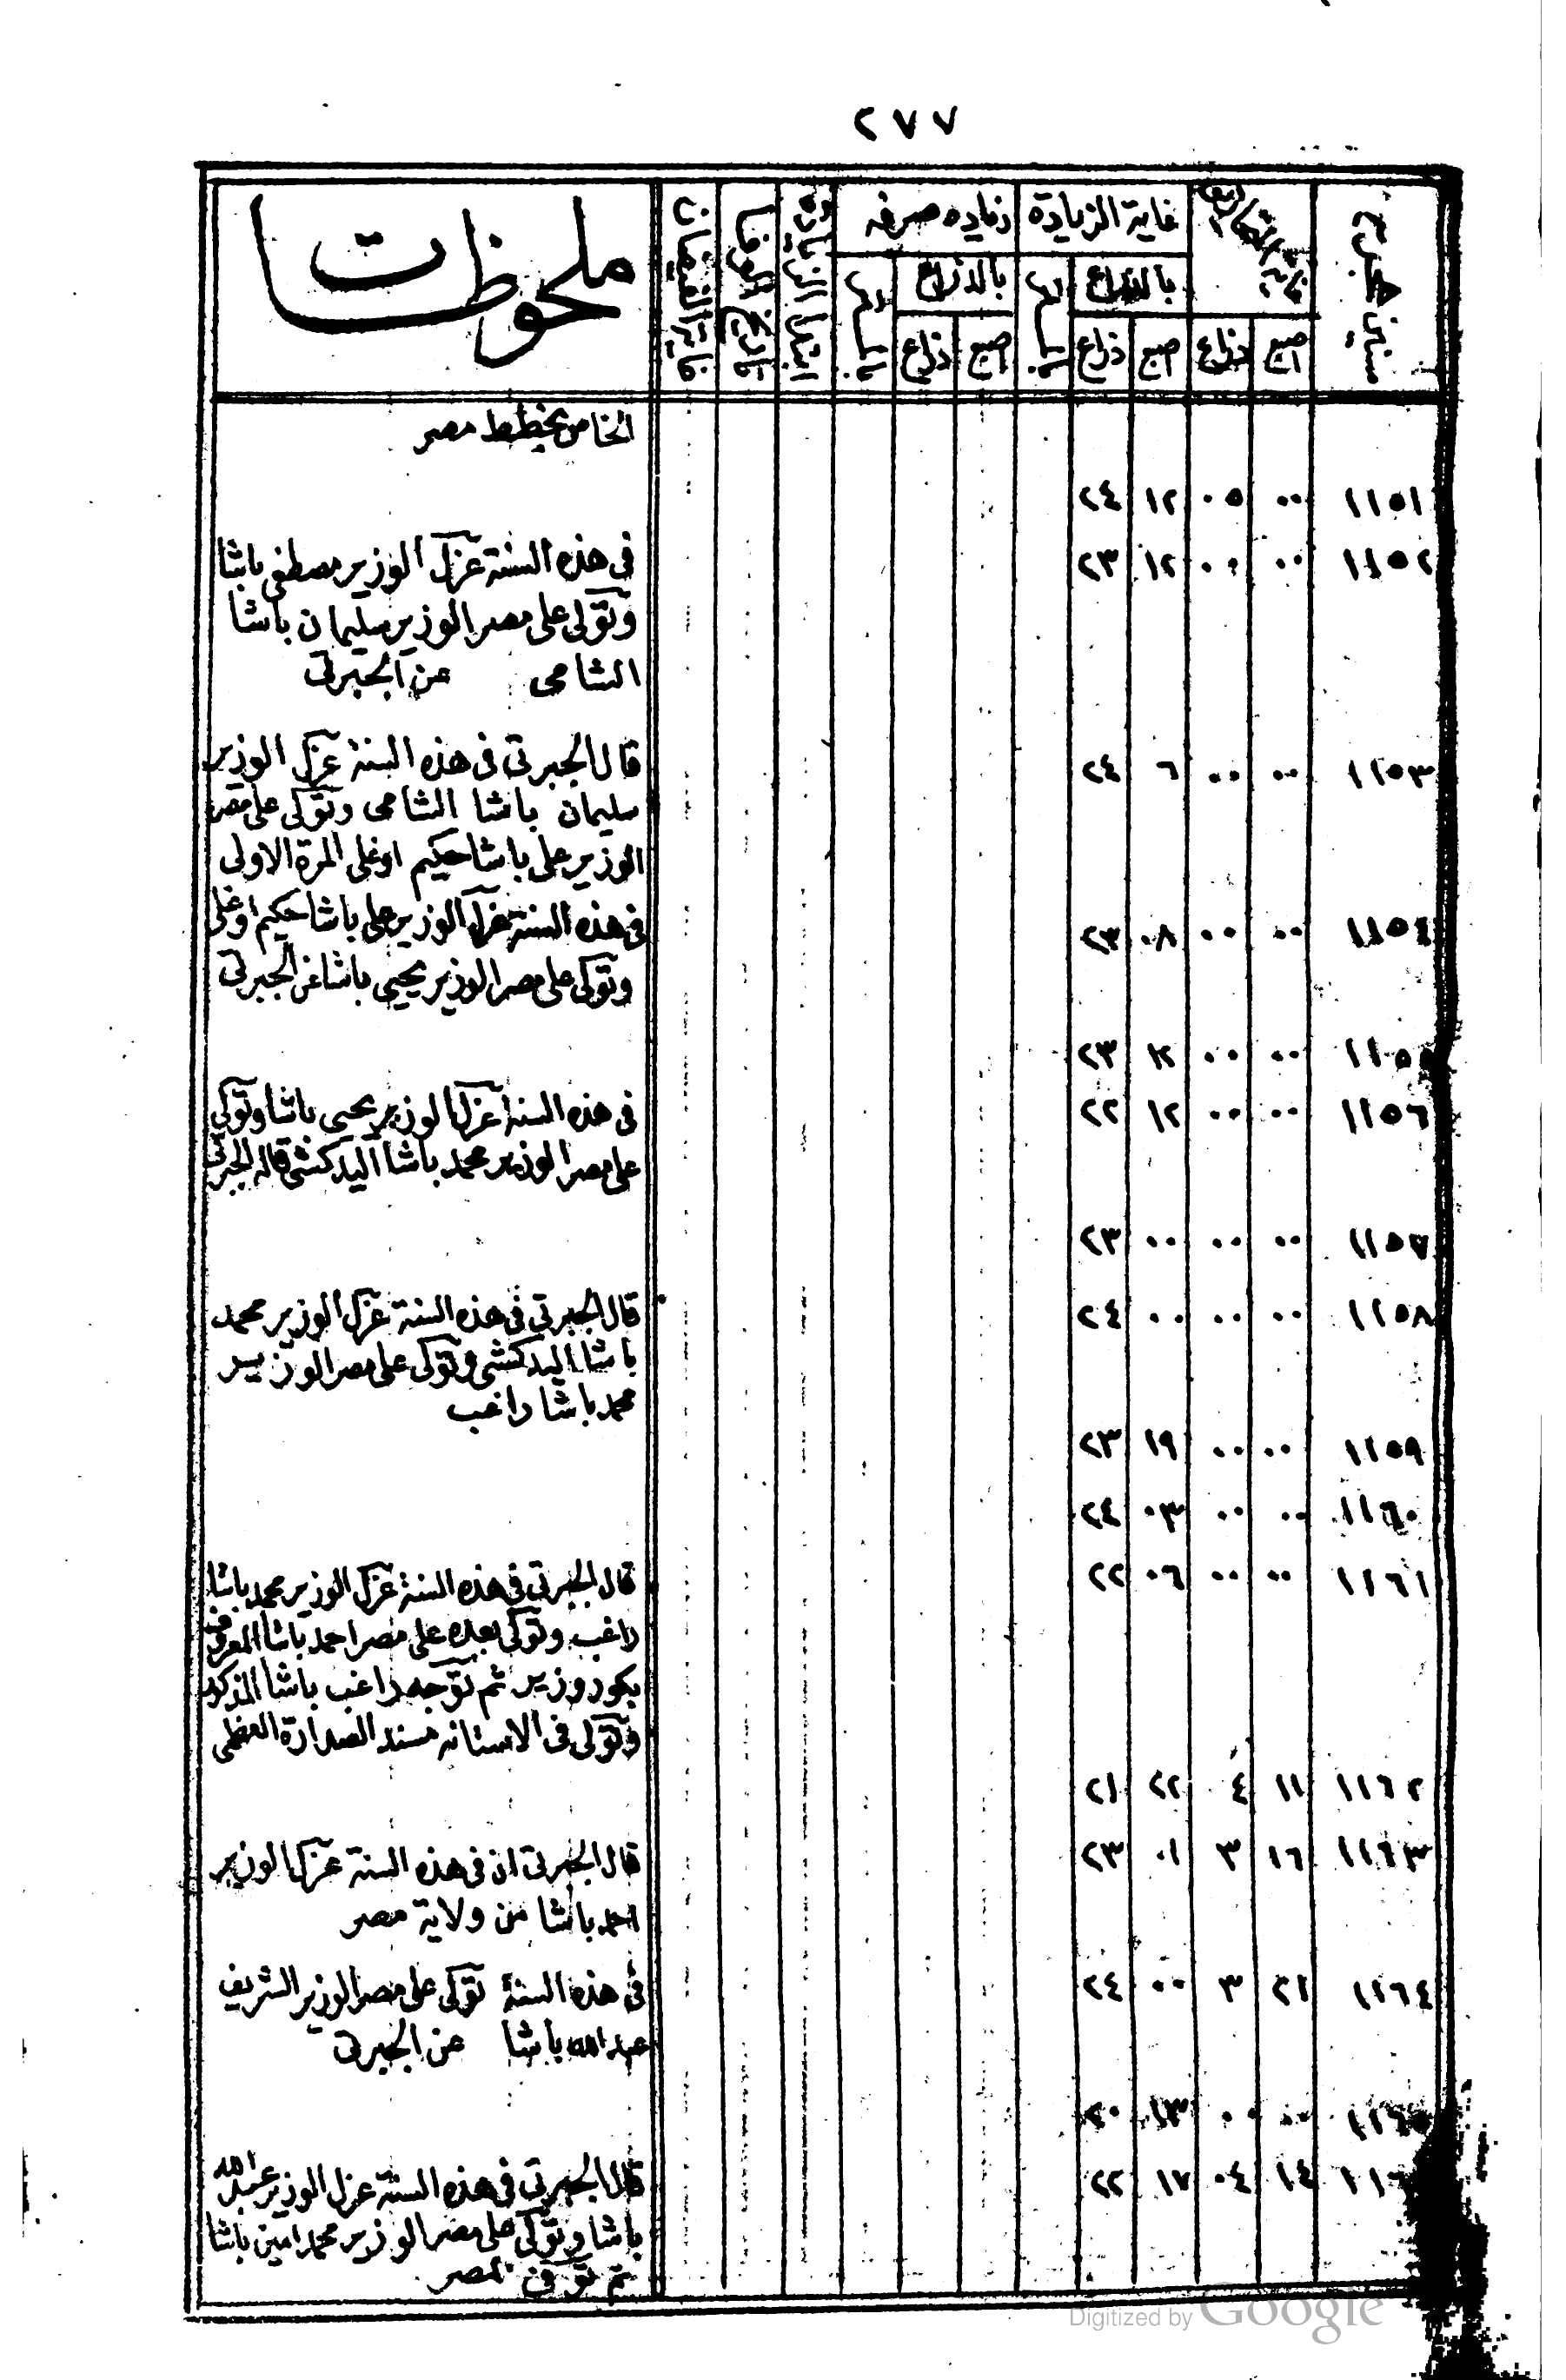 ٢٧٧
سنين هجرية
غاية الزيادة
زياده صرفه
ملحوظات
بالذراع
بالذراع
اصبع ذراع اصبع ذراع اصبع ذراع
الخامس بخطط مصر
١١٥١ ٠٠ ٠٥ ١٢ ٢٤
١١٥٢ ٠٠ ٠٠ ١٢ ٢٣ فى هذه السنة عزل الوزير مصطفى باشا
وتولى على مصر الوزير سليمان باشا
الشامى عن الجبرتى
١١٥٣ ٠٠ ٠٠ ٦ ٢٤ قال الجبرتى فى هذه السنة عزل الوزير
سليمان باشا الشامى وتولى على مصر
الوزير على باشا حكيم اوغلى المرة الاولى
١١٥٤ ٠٠ ٠٠ ٠٨ ٢٣ فى هذه السنة عزل الوزير على باشا حكيم اوغلى
وتولى على مصر الوزير يحيى باشا عن الجبرتى
١١٥٥ ٠٠ ٠٠ ١٢ ٢٣
١١٥٦ ٠٠ ٠٠ ١٢ ٢٢ فى هذه السنة عزل الوزير يحيى باشا وتولى
على مصر الوزير محمد باشا اليدكشى قاله الجبرتى
١١٥٧ ٠٠ ٠٠ ٠٠ ٢٣
١١٥٨ ٠٠ ٠٠ ٠٠ ٢٤ قال الجبرتى فى هذه السنة عزل الوزير محمد
باشا اليدكشى وتولى على مصر الوزير
محمد باشا راغب
١١٥٩ ٠٠ ٠٠ ١٩ ٢٣
١١٦٠ ٠٠ ٠٠ ٠٣ ٢٤
١١٦١ ٠٠ ٠٠ ٠٦ ٢٢ قال الجبرتى فى هذه السنة عزل الوزير محمد باشا
راغب وتولى بعده على مصر احمد باشا المعروف
بكور وزير ثم توجه راغب باشا المذكور
وتولى فى الاستانه مسند الصدارة العظمى
١١٦٢ ١١ ٤ ٢٢ ٢١
١١٦٣ ١٦ ٣ ٠١ ٢٣ قال الجبرتى ان فى هذه السنة عزل الوزير
احمد باشا من ولاية مصر
١١٦٤ ٢١ ٣ ٠٠ ٢٤ فى هذه السنة تولى على مصر الوزير الشريف
عبد الله باشا عن الجبرتى
١١٦٥ ٠٠ ٠٠ ١٣ ٢٠
١١٦ ١٤ ٠٤ ١٧ ٢٢ قال الجبرتى فى هذه السنة عزل الوزير عبد الله
باشا وتولى على مصر الوزير محمد امين باشا
ثم توفى بمصر
Digitized by Google